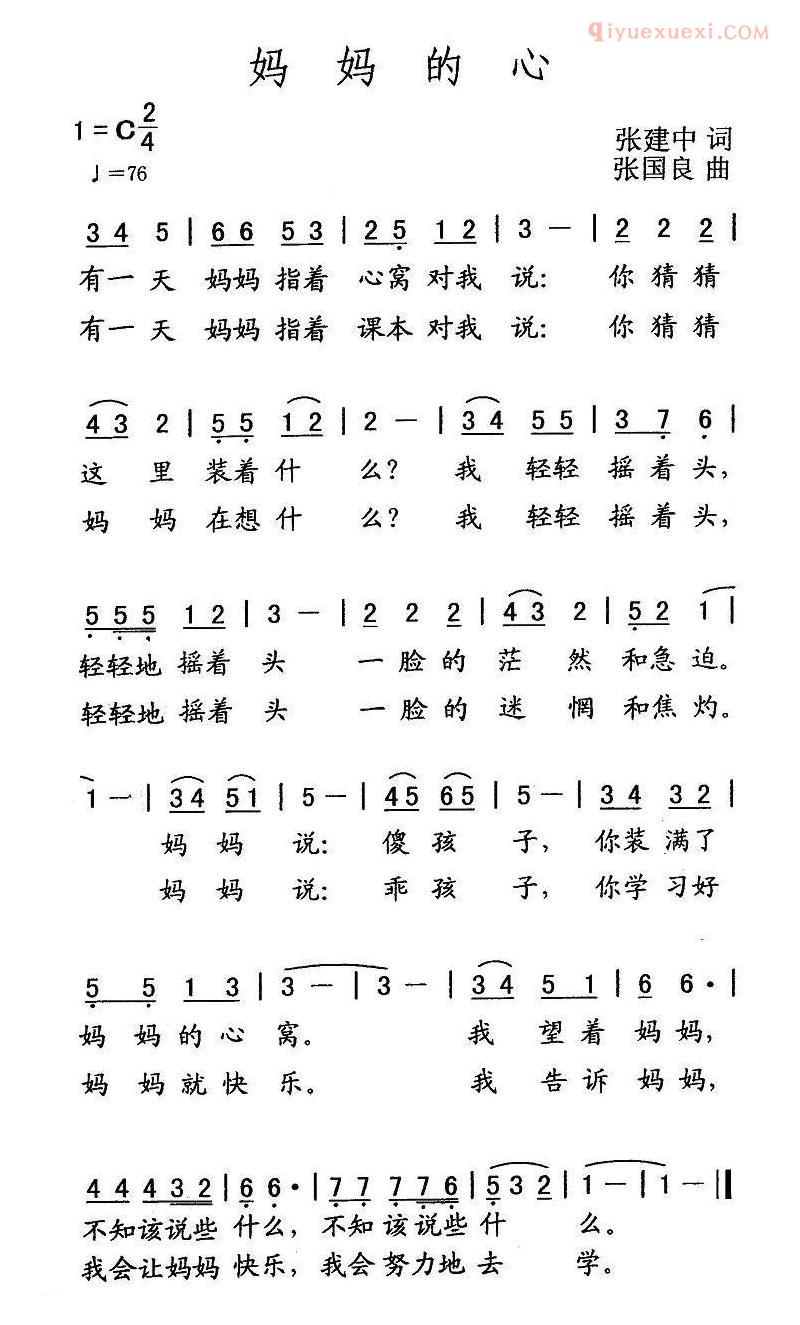 qiyuexuexi.COM
妈 妈 的 心
1=C 2/4
♩=76
张建中 词
张国良 曲
3 4 5 | 6 6 5 3 | 2 5 1 2 | 3 — | 2 2 2 |
有一天 妈妈 指着 心窝 对我 说: 你 猜 猜
有一天 妈妈 指着 课本 对我 说: 你 猜 猜
4 3 2 | 5 5 1 2 | 2 — | 3 4 5 5 | 3 7 6 |
这 里 装着 什 么? 我 轻轻 摇 着 头,
妈 妈 在想 什 么? 我 轻轻 摇 着 头,
5 5 5 1 2 | 3 — | 2 2 2 | 4 3 2 | 5 2 1 |
轻轻地 摇着 头 一 脸 的 茫 然 和急 迫。
轻轻地 摇着 头 一 脸 的 迷 惘 和焦 灼。
1 — | 3 4 5 1 | 5 — | 4 5 6 5 | 5 — | 3 4 3 2 |
妈 妈 说: 傻 孩 子, 你装 满了
妈 妈 说: 乖 孩 子, 你学 习好
5 5 1 3 | 3 — | 3 — | 3 4 5 1 | 6 6· |
妈 妈 的 心 窝。 我 望 着 妈 妈,
妈 妈 就 快 乐。 我 告 诉 妈 妈,
4 4 4 3 2 | 6 6· | 7 7 7 7 6 | 5 3 2 | 1 — | 1 — ‖
不知 该说些 什么, 不知 该说些 什 么。
我会 让妈妈 快乐, 我会 努力地 去 学。